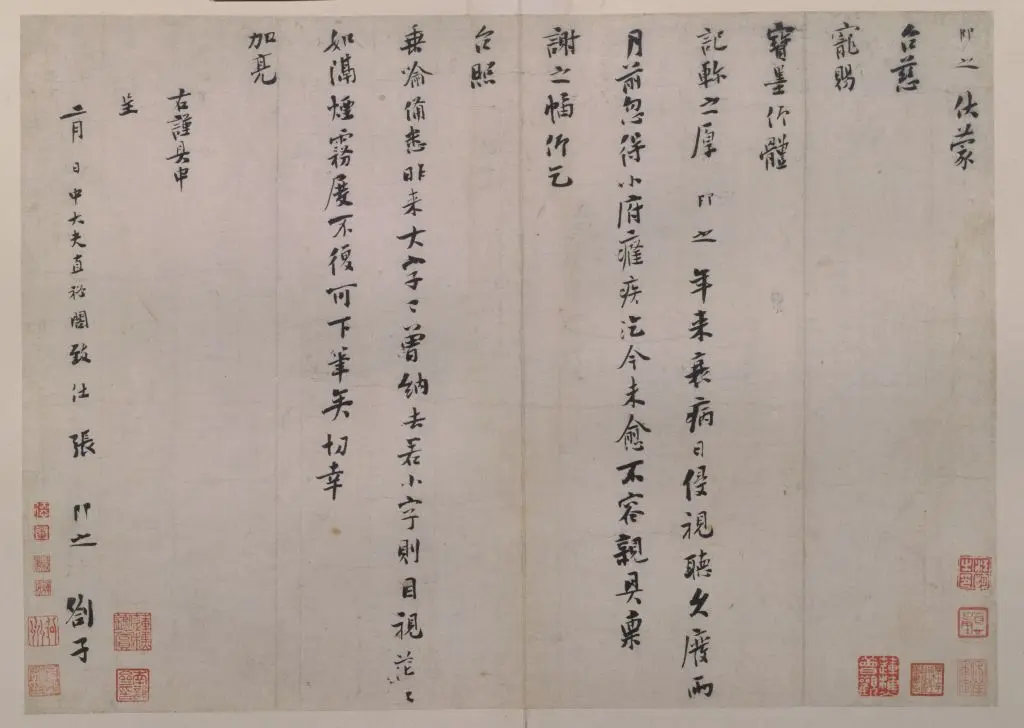 即之 伏蒙
台慈
寵賜
寶墨仰體
記軫之厚 即之 年来衰病日侵視聽久廢兩
月前忽得小府癰疾迄今未愈不容親具稟
謝之幅仰乞
台照
垂喻備悉昨来大字々曾納去若小字則目視茫々
如隔煙霧屢不復可下筆矣切幸
加亮
右謹具申
呈
二月 日中大夫直祕閣致仕 張 即之 劄子